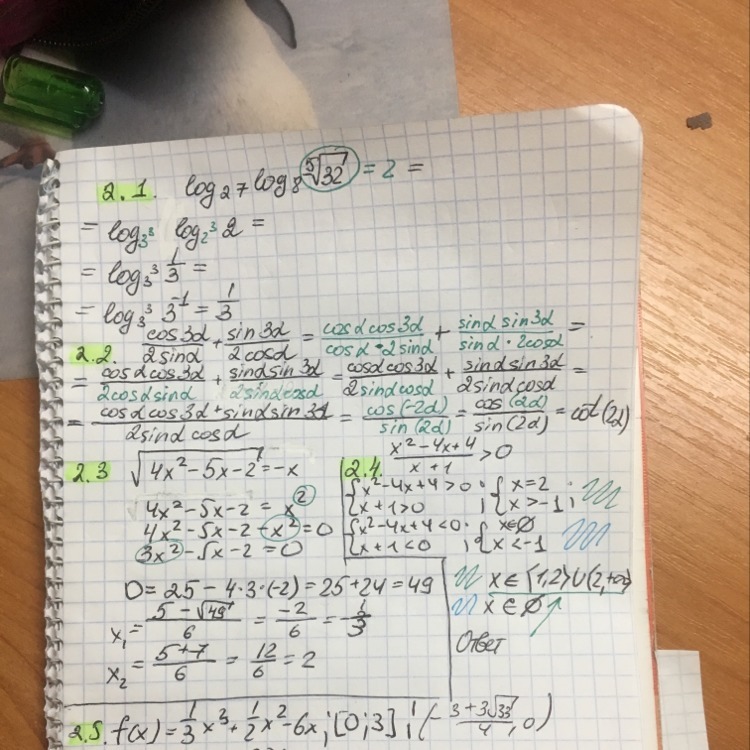 2.1. log₂₇ log₈ ⁵√32 = 2 =
= log₃³ log₂³ 2 =
= log₃³ 1/3 =
= log₃³ 3⁻¹ = 1/3
2.2. cos3α/2sinα + sin3α/2cosα = cosα cos3α/cosα · 2sinα + sinα sin3α/sinα · 2cosα =
= cosα cos3α/2cosα sinα + sinα sin3α/2sinα cosα = cosα cos3α/2sinα cosα + sinα sin3α/2sinα cosα =
= cosα cos3α + sinα sin3α/2sinα cosα = cos(-2α)/sin(2α) = cos(2α)/sin(2α) = cot(2α)
2.3 √4x²-5x-2 = -x
4x²-5x-2 = x²
4x²-5x-2-x² = 0
3x²-5x-2 = 0
D = 25-4·3·(-2) = 25+24 = 49
x₁ = 5-√49/6 = -2/6 = -1/3
x₂ = 5+7/6 = 12/6 = 2
2.4. x²-4x+4/x+1 > 0
{x²-4x+4>0 ; {x=2
{x+1>0 ; {x>-1 ;
{x²-4x+4<0 ; {x∈∅
{x+1<0 ; {x<-1
x∈(1,2)∪(2,+∞)
x∈∅
Ответ
2.5. f(x) = 1/3 x³ + 1/2 x² - 6x ; [0;3] ; (- 3+3√33/4 , 0)